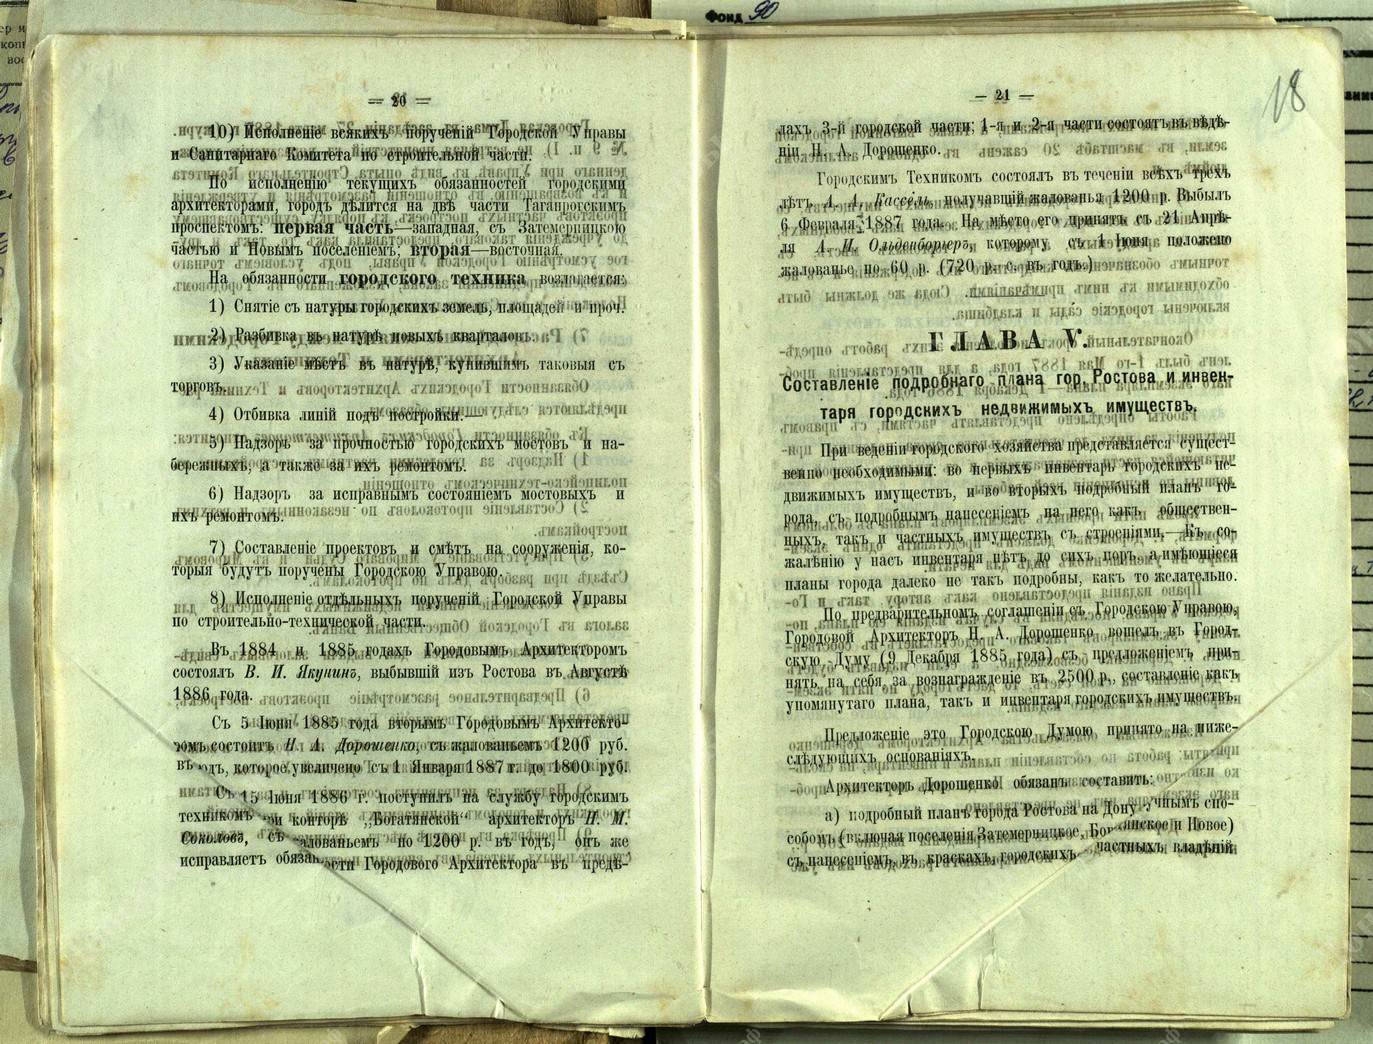 Фонд 90
— 20 —
10) Исполненіе всякихъ порученій Городской Управы
и Санитарнаго Комитета по строительной части.
По исполненію текущихъ обязанностей городскими
архитекторами, городъ дѣлится на двѣ части Таганрогскимъ
проспектомъ: первая часть—западная, съ Затемерницкою
частью и Новымъ поселеніемъ, вторая—восточная.
На обязанности городского техника возлагается:
1) Снятіе съ натуры городскихъ земель, площадей и проч.
2) Разбивка въ натурѣ новыхъ кварталовъ.
3) Указаніе мѣстъ въ натурѣ, купившимъ таковыя съ
торговъ.
4) Отбивка линій подъ постройки.
5) Надзоръ за прочностью городскихъ мостовъ и на-
бережныхъ, а также за ихъ ремонтомъ.
6) Надзоръ за исправнымъ состояніемъ мостовыхъ и
ихъ ремонтомъ.
7) Составленіе проектовъ и смѣтъ на сооруженія, ко-
торыя будутъ поручены Городскою Управою.
8) Исполненіе отдѣльныхъ порученій Городской Управы
по строительно-технической части.
Въ 1884 и 1885 годахъ Городовымъ Архитекторомъ
состоялъ В. И. Якунинъ, выбывшій изъ Ростова въ Августѣ
1886 года.
Съ 5 Іюня 1885 года вторымъ Городовымъ Архитекто-
ромъ состоитъ Н. А. Дорошенко, съ жалованьемъ 1200 руб.
въ годъ, которое увеличено съ 1 Января 1887 г. до 1800 руб.
Съ 15 Іюня 1886 г. поступилъ на службу городскимъ
техникомъ при конторѣ „Богатянской“ архитекторъ Н. М.
Соколовъ, съ жалованьемъ по 1200 р. въ годъ, онъ же
исправляетъ обязанности Городового Архитектора въ предѣ-
— 21 —
18
лахъ 3-й городской части; 1-я и 2-я части состоятъ въ вѣдѣ-
ніи Н. А. Дорошенко.
Городскимъ Техникомъ состоялъ въ теченіи всѣхъ трехъ
лѣтъ А. А. Кассель, получавшій жалованья 1200 р. Выбылъ
6 Февраля 1887 года. На мѣсто его принятъ съ 21 Апрѣ-
ля А. И. Ольденборгеръ, которому съ 1 Іюня положено
жалованье по 60 р. (720 р. с. въ годъ.)
ГЛАВА V.
Составленіе подробнаго плана гор. Ростова и инвен-
таря городскихъ недвижимыхъ имуществъ.
При веденіи городского хозяйства представляется сущест-
венно необходимыми: во первыхъ инвентарь городскихъ не-
движимыхъ имуществъ, и во вторыхъ подробный планъ го-
рода, съ подробнымъ нанесеніемъ на него какъ общественн-
ныхъ, такъ и частныхъ имуществъ съ строеніями.—Къ со-
жалѣнію у насъ инвентаря нѣтъ до сихъ поръ, а имѣющіеся
планы города далеко не такъ подробны, какъ то желательно.
По предварительномъ соглашеніи съ Городскою Управою,
Городовой Архитекторъ Н. А. Дорошенко вошелъ въ Город-
скую Думу (9 Декабря 1885 года) съ предложеніемъ при-
нять на себя, за вознагражденіе въ 2500 р., составленіе какъ
упомянутаго плана, такъ и инвентаря городскихъ имуществъ.
Предложеніе это Городскою Думою принято на ниже-
слѣдующихъ основаніяхъ.
Архитекторъ Дорошенко обязанъ составить:
а) подробный планъ города Ростова на Дону ручнымъ спо-
собомъ (включая поселенія Затемерницкое, Богатянское и Новое)
съ нанесеніемъ, въ краскахъ, городскихъ частныхъ владѣній